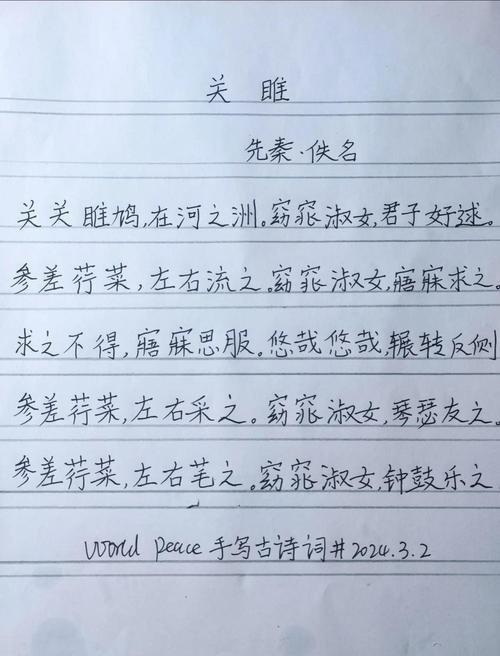 关雎
先秦·佚名
关关雎鸠,在河之洲。窈窕淑女,君子好逑。
参差荇菜,左右流之。窈窕淑女,寤寐求之。
求之不得,寤寐思服。悠哉悠哉,辗转反侧
参差荇菜,左右采之。窈窕淑女,琴瑟友之。
参差荇菜,左右芼之。窈窕淑女,钟鼓乐之
World Peace 手写古诗词#2024.3.2